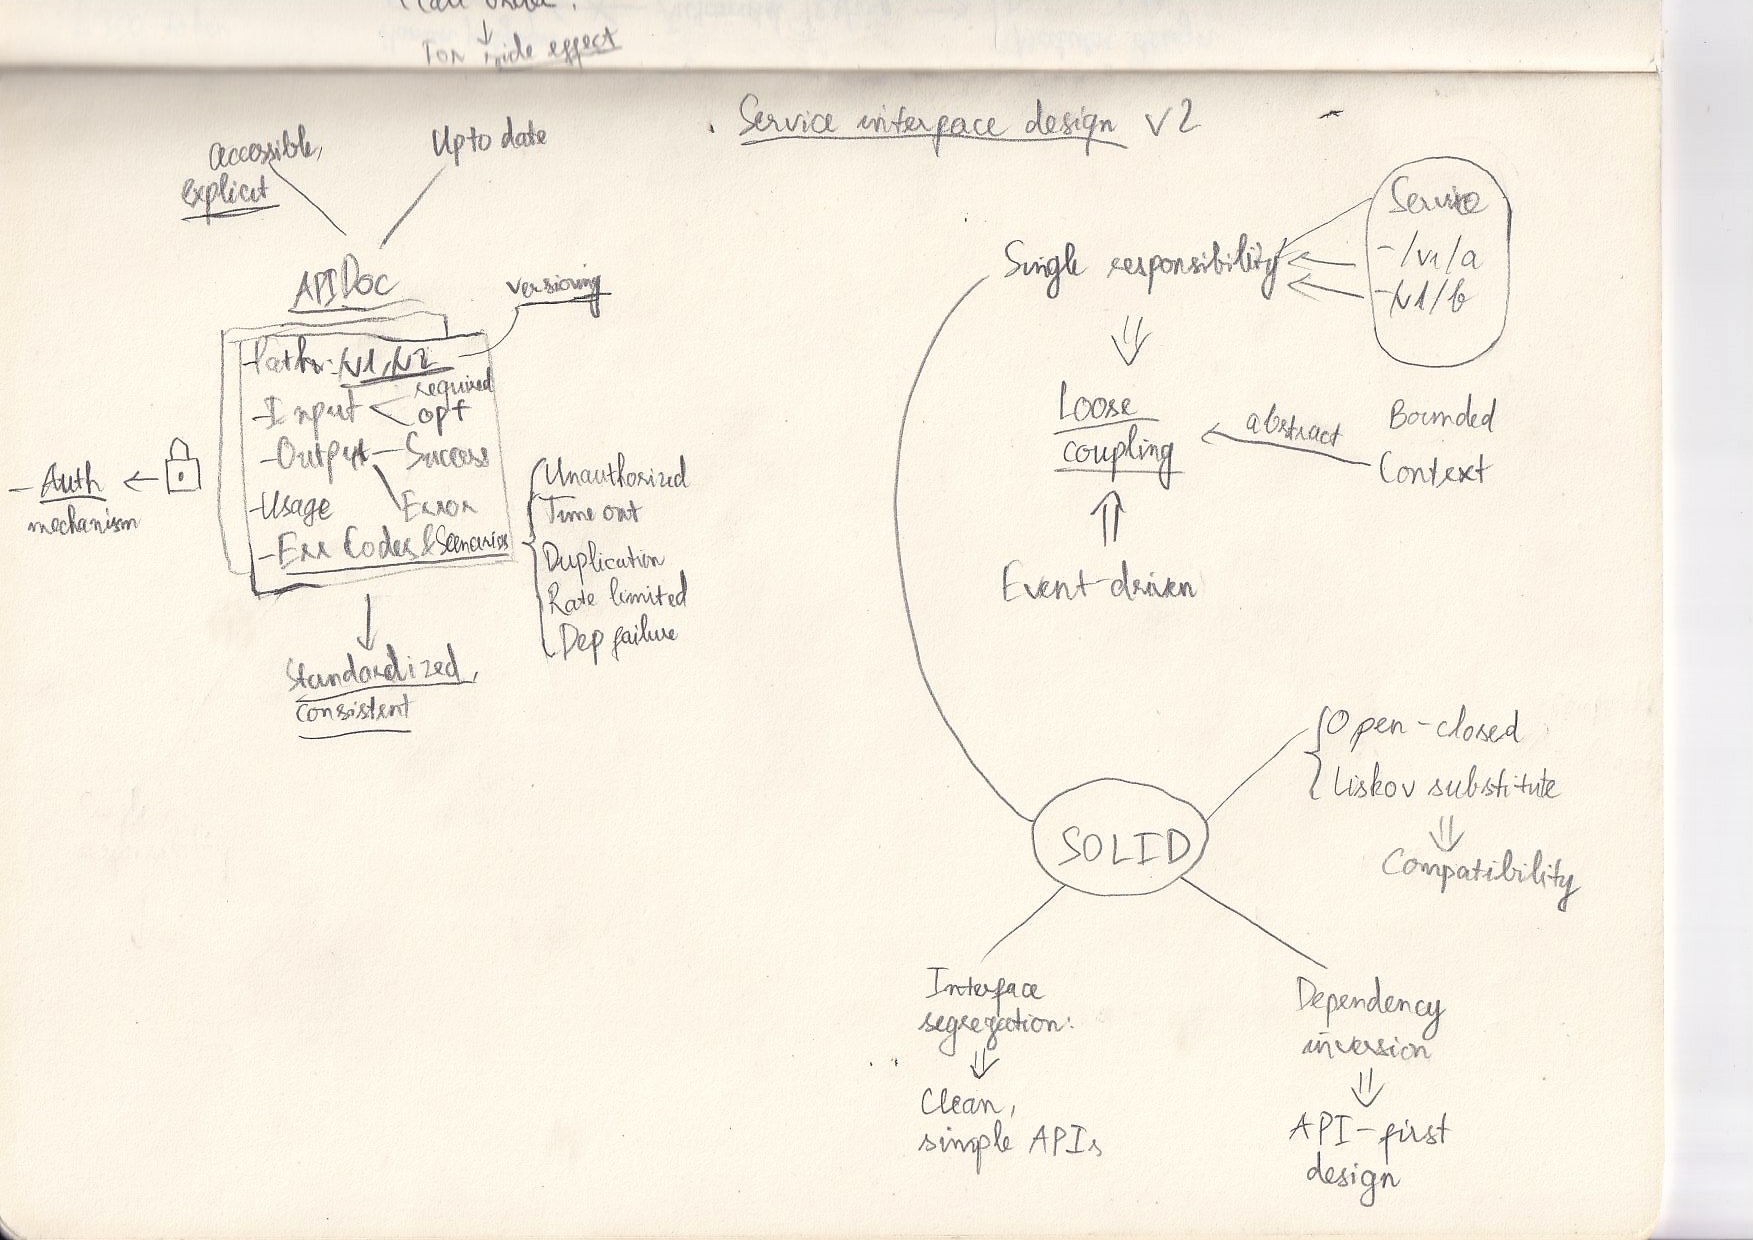 side effect
Service interface design v2
accessible,
explicit
Up to date
API Doc
versioning
-Path: /v1, /v2
-Input
required
opt
-Output - Success
Error
-Usage
-Err Codes & Scenarios
- Auth
mechanism
Unauthorized
Time out
Duplication
Rate limited
Dep failure
Standardized,
consistent
Service
-/v1/a
-/v1/b
Single responsibility
Loose
coupling
abstract
Bounded
Context
Event-driven
SOLID
Open-closed
Liskov substitute
Compatibility
Interface
segregation:
Clean,
simple APIs
Dependency
inversion
API-first
design